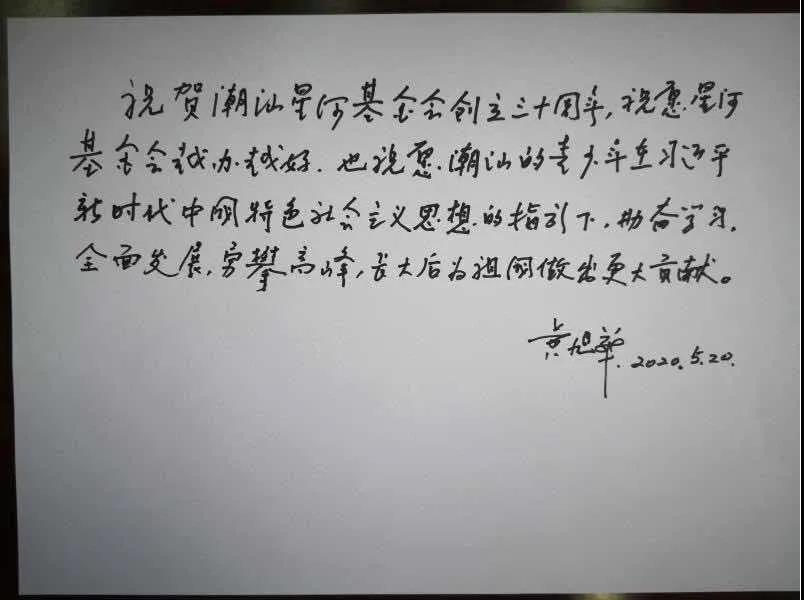 祝贺潮汕星河基金会创立三十周年,祝愿星河
基金会越办越好.也祝愿潮汕的青少年在习近平
新时代中国特色社会主义思想的指引下,勤奋学习,
全面发展,勇攀高峰,长大后为祖国做出更大贡献。
黄旭华.2020.5.20.